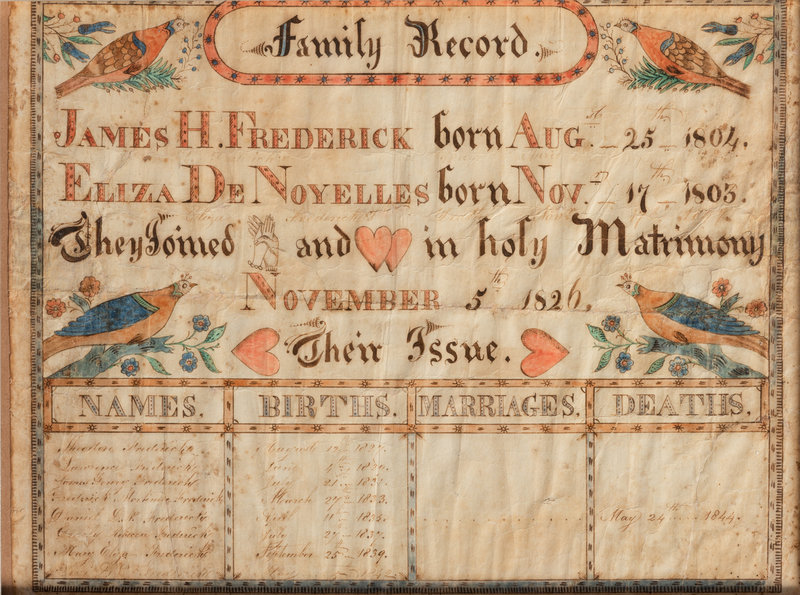 Family Record.
James H. Frederick born Aug. 25th 1804.
Eliza De Noyelles born Nov. 17th 1803.
They Joined and in holy Matrimony
November 5th 1826.
Their Issue.
NAMES. BIRTHS. MARRIAGES. DEATHS.
Theodore Frederick August 12 1827.
Lawrence Frederick June 4th
James Henry Frederick July 21st 1831.
Frederick Frederick March 27th 1833.
Daniel D. N. Frederick 11th 1835. May 24th 1844.
Frederick July 27th 1837.
Mary Eliza Frederick September 25th 1839.